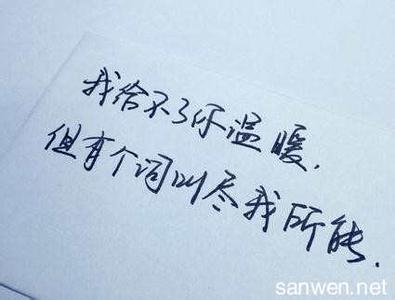 我给不了你温暖,
但有个词叫尽我所能.
sanwen.net